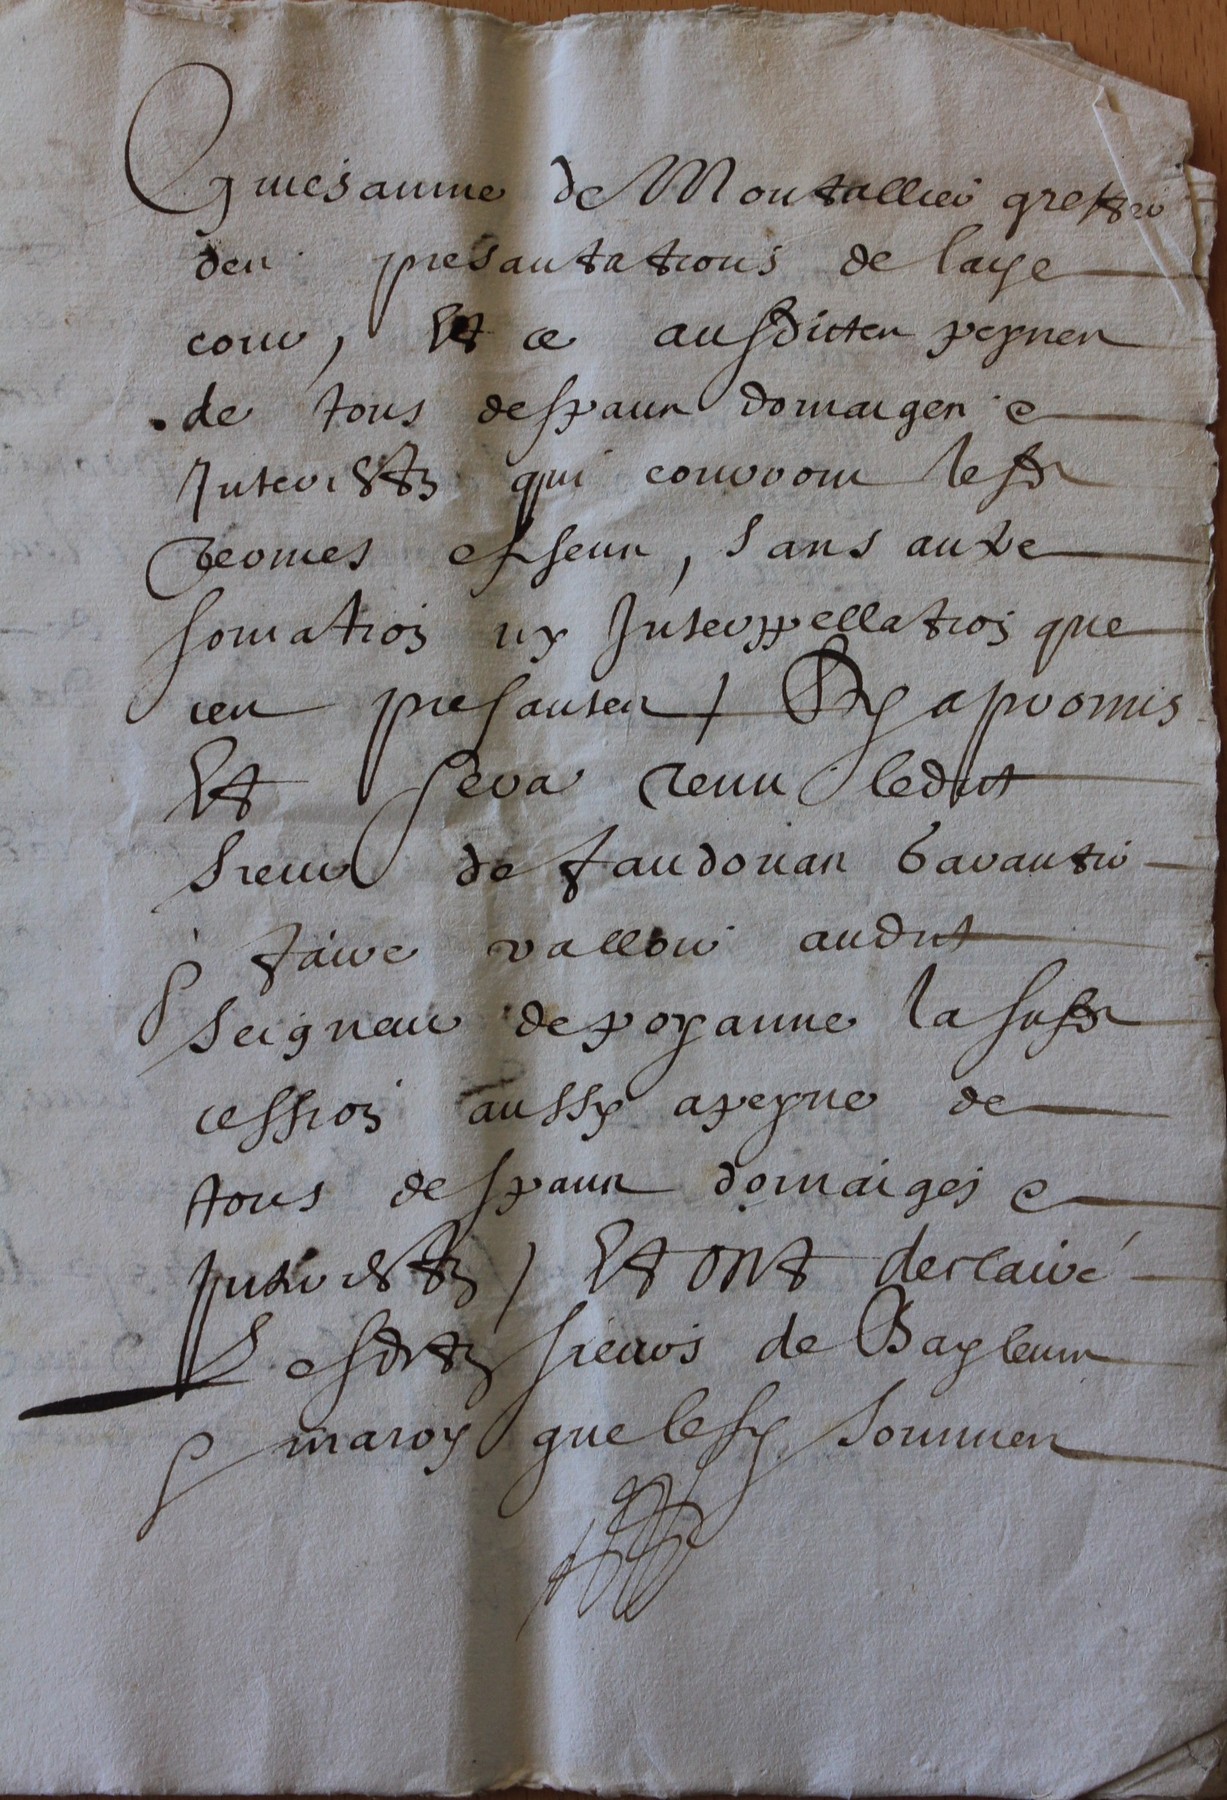 Guiesanme de Montallier greffier
des presantations de laye
cour, Et ce ausdittes peynes
de tous despans domaiges e
Interestz qui courront lesd
termes esseus, sans autre
somation ny Interppellation que
ces presantes / Et a promis
Et sera tenu ledit
sieur de faudouan Garantir
& faire valloir audit
seigneur de poyanne la susd
cession aussy a peyne de
tous despans domaiges e
Interestz / Et ONt declairé
Lesditz sieurs de Baylens
& maroy que lesd sommes